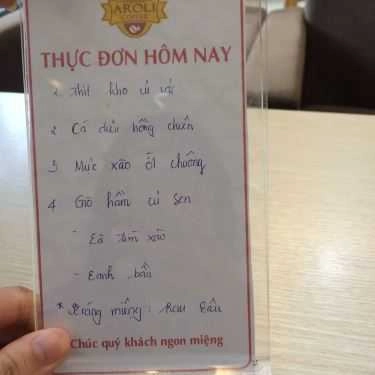 AROLI
COFFEE
THỰC ĐƠN HÔM NAY
1 Thịt kho củ cải
2 Cá diêu hồng chiên
3 Mực xào ớt chuông
4 Giò hầm củ sen
- Cà tím xào
- Canh bầu
* Tráng miệng : Rau Câu
Chúc quý khách ngon miệng